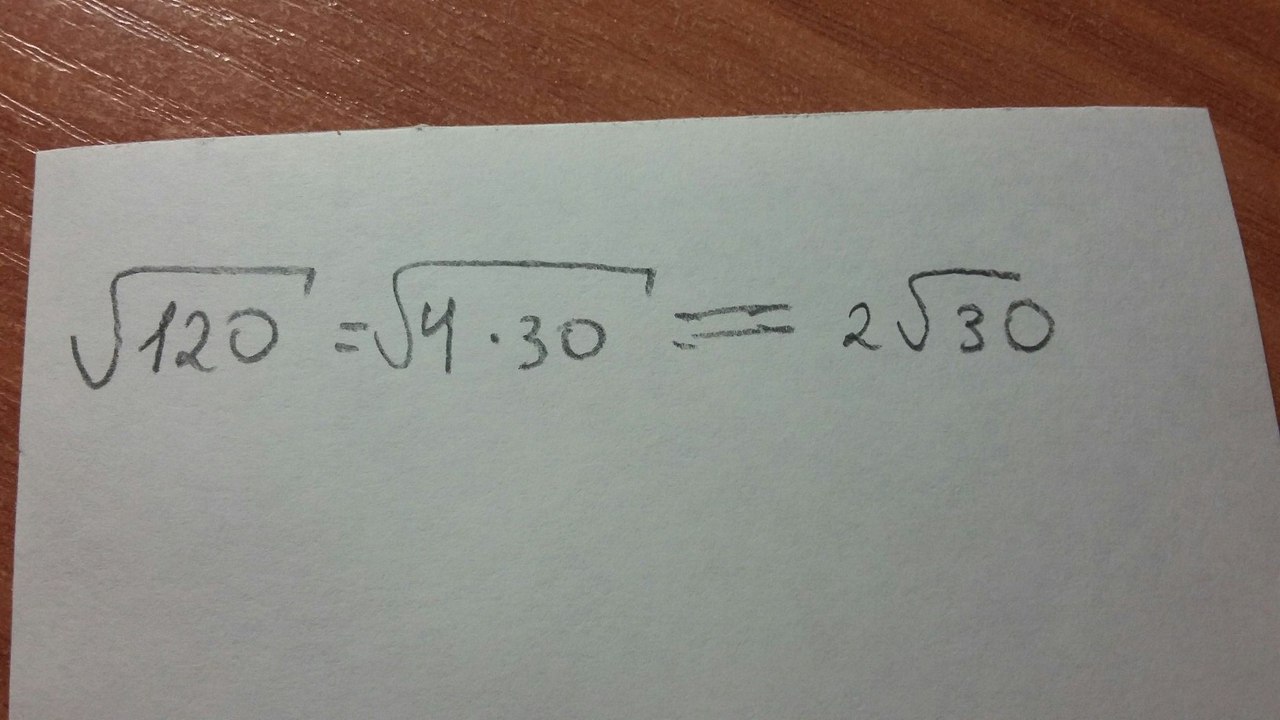 √120 = √4·30 = 2√30